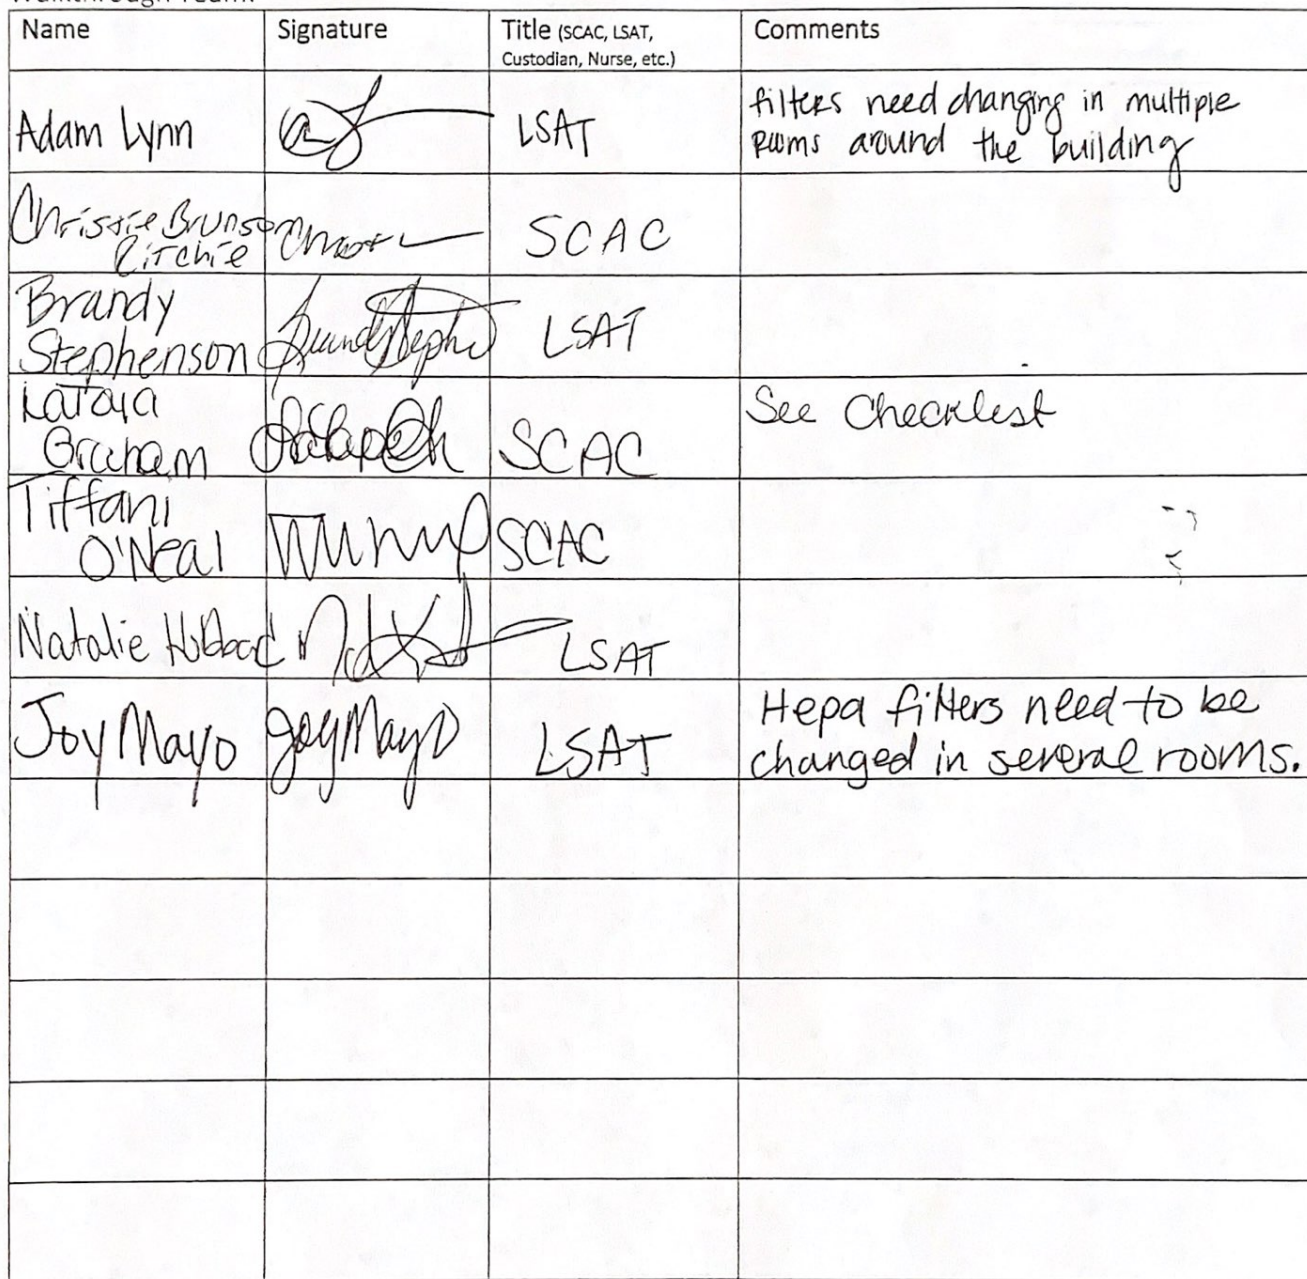 Name Signature Title (SCAC, LSAT, Comments
Custodian, Nurse, etc.)
Adam Lynn LSAT filters need changing in multiple
rooms around the building
Christie Brunson
Ritchie SCAC
Brandy
Stephenson LSAT
LaToya
Graham SCAC See Checklist
Tiffani
O'Neal SCAC
Natalie Hubbard LSAT
Joy Mayo Joy Mayo LSAT Hepa filters need to be
changed in several rooms.